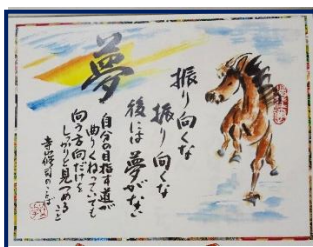 夢
振り向くな
振り向くな
後には夢がない
自分の目指す道が
曲りくねっていても
向う方向だけを
しっかりと見つめること
寺山修司のことば